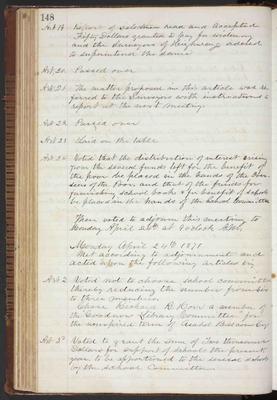 148
Art 19. Report of selectmen read and accepted
Fifty Dollars granted to pay for widening
and the Surveyors of Highways advised
to superintend the same
Art 20. Passed over
Art 21. The matter proposed in this article was re-
ferred to the Surveyors with instructions to
report at the next meeting.
Art 22. Passed over
Art 23. Laid on the table
Art 24. Voted that the distribution of interest arising
from the several funds left for the benefit of
the poor be placed in the hands of the Over-
seers of the Poor and that of the funds for
furnishing school books & for benefit of schools
be placed in the hands of the School Committee
Then voted to adjourn this meeting to
Monday April 24th at 9 o'clock A.M.
Monday April 24th 1871.
Met according to adjournment and
acted upon the following articles viz
Art 2. Voted not to choose school committee
thereby reducing the number from six
to three members
Chose B. How a member of
the Goodnow Library Committee for
the unexpired term of
Art 3d. Voted to grant the sum of Two thousand
Dollars for support of schools the present
year to be apportioned to the several schools
by the School Committee